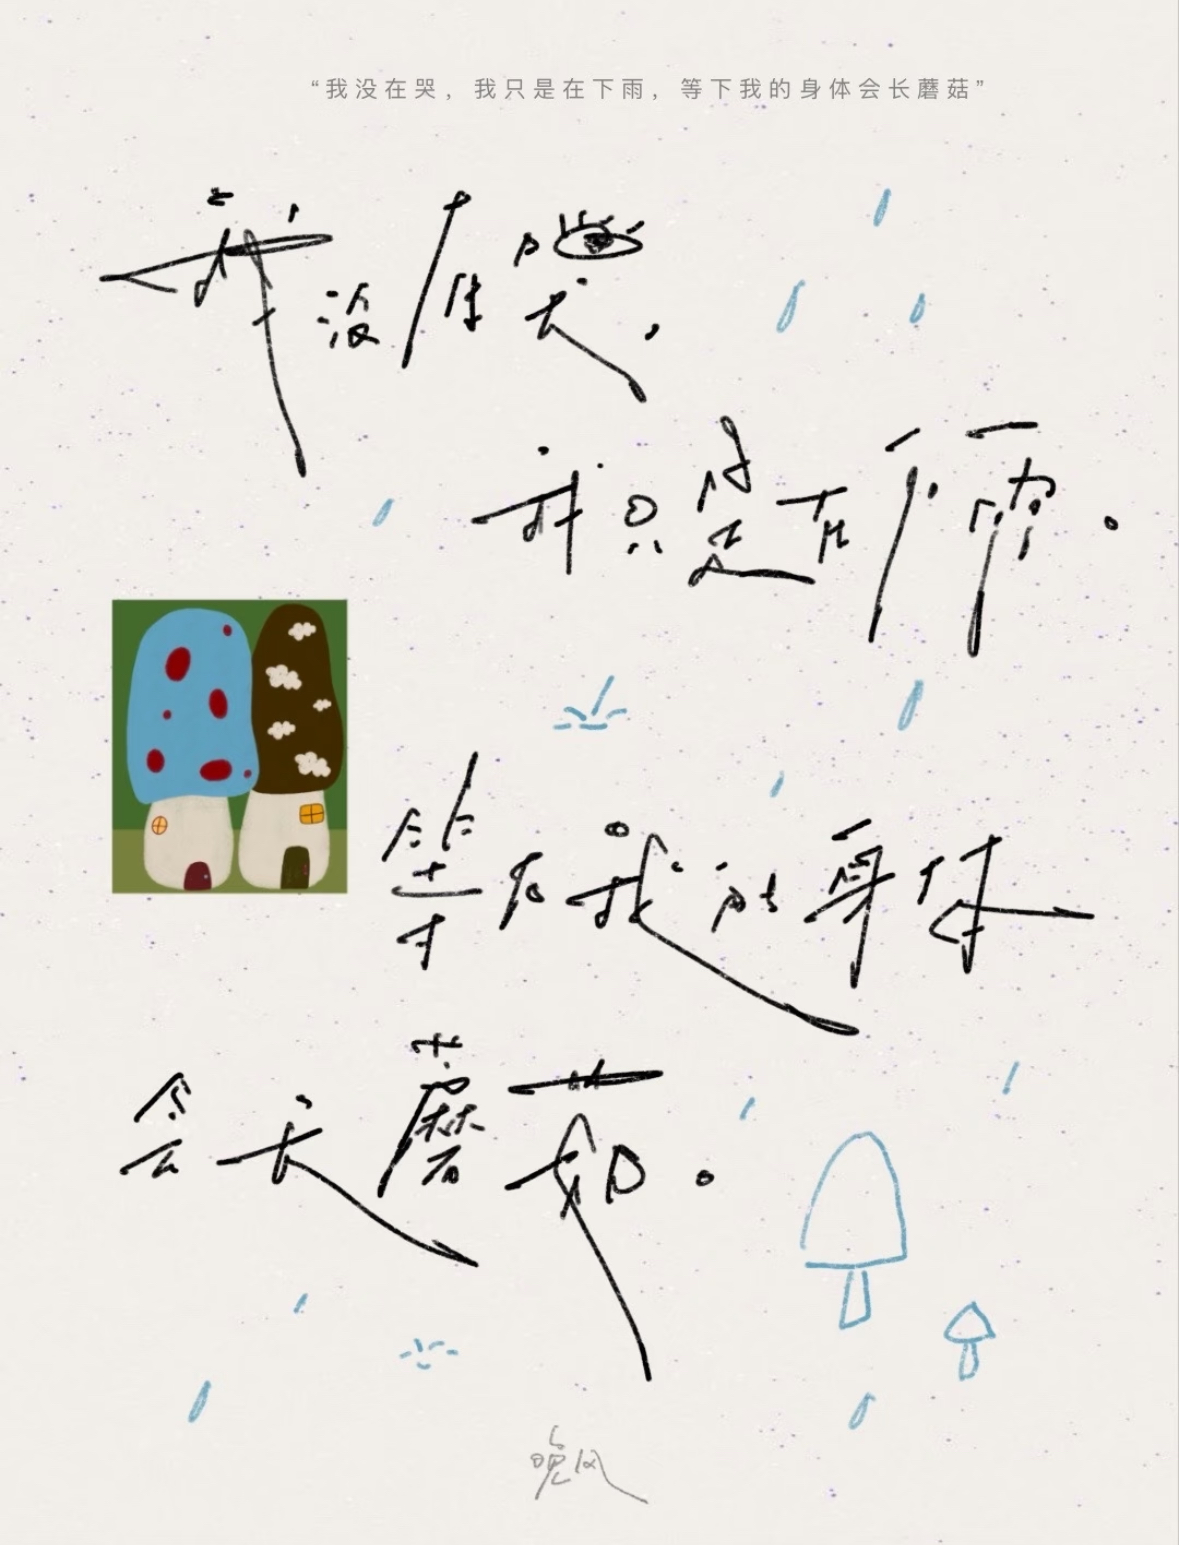 “我没在哭，我只是在下雨，等下我的身体会长蘑菇”
我没在哭，
我只是在下雨。
等下我的身体
会长蘑菇。
晚风